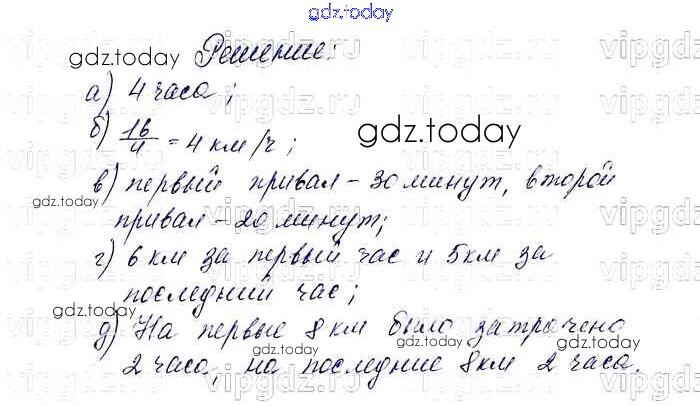 gdz.today
gdz.today Решение:
а) 4 часа;
б) 16/4 = 4 км/ч;
gdz.today
в) первый привал – 30 минут, второй
gdz.today
привал – 20 минут;
г) 6 км за первый час и 5 км за
последний час;
gdz.today
д) На первые 8 км было затрачено
gdz.today
2 часа, на последние 8 км 2 часа.
gdz.today
vipgdz.ru